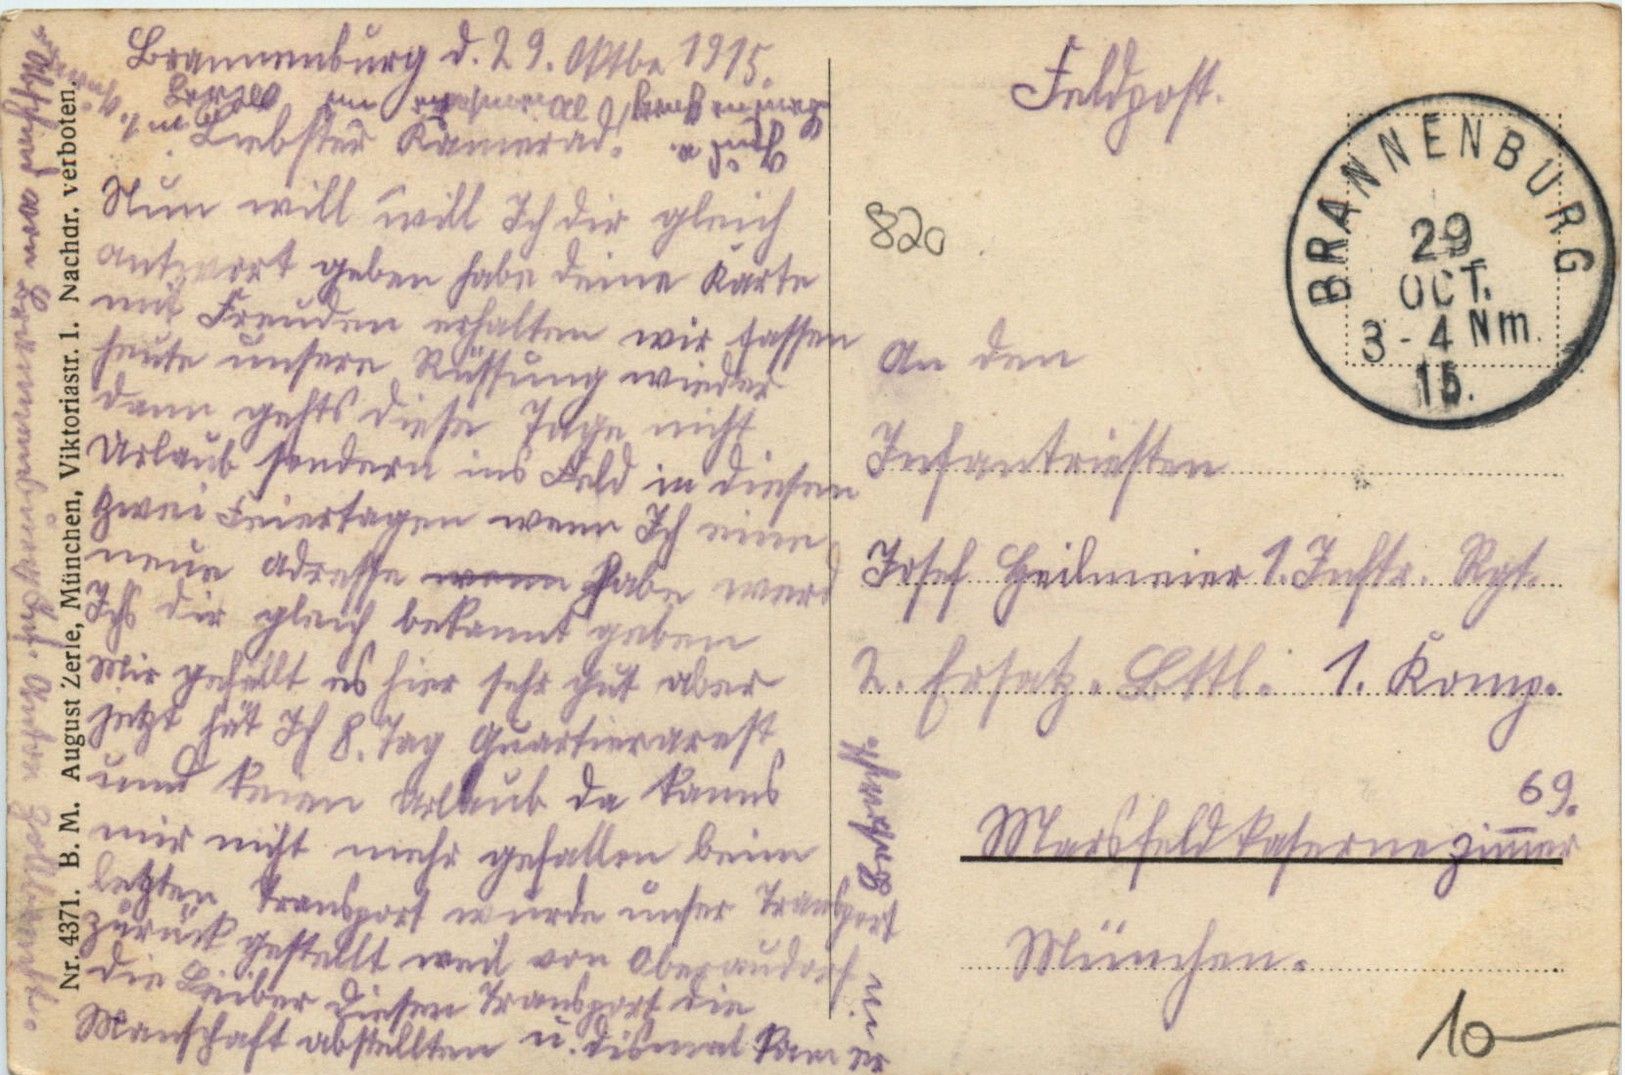 Brannenburg d. 29. Oktbe 1915.
Liebster Kamerad!
Nun will will Ich dir gleich
antwort geben habe deine Karte
mit Freuden erhalten wir fassen
heute unsere Rüstung wieder
dann gehts diese Tage nicht
Urlaub sondern ins Feld in diesen
zwei Feiertagen wenn Ich eine
neue Adresse wenn habe werd
Ichs dir gleich bekannt geben
Mir gefällt es hier sehr gut aber
jetzt hät Ich 8. Tag Quartierarest
und keien Urlaub da kanns
mir nicht mehr gefallen beim
letzten Transport wurde unser Transport
zurück gestellt weil von Oberaudorf
die Leiber diesen Transport die
Manschaft abstellten u. dismal kam
Nr. 4371. B. M. August Zerle, München, Viktoriastr. 1. Nachdr. verboten.
Feldpost.
820
BRANNENBURG
29
OCT.
3-4 Nm.
15.
An den
Infantristen
Josef Heilmeier 1. Inftr. Rgt.
2. Ersatz. Bttl. 1. Komp.
69.
Marsfeldkaserne zimmer
München.
10